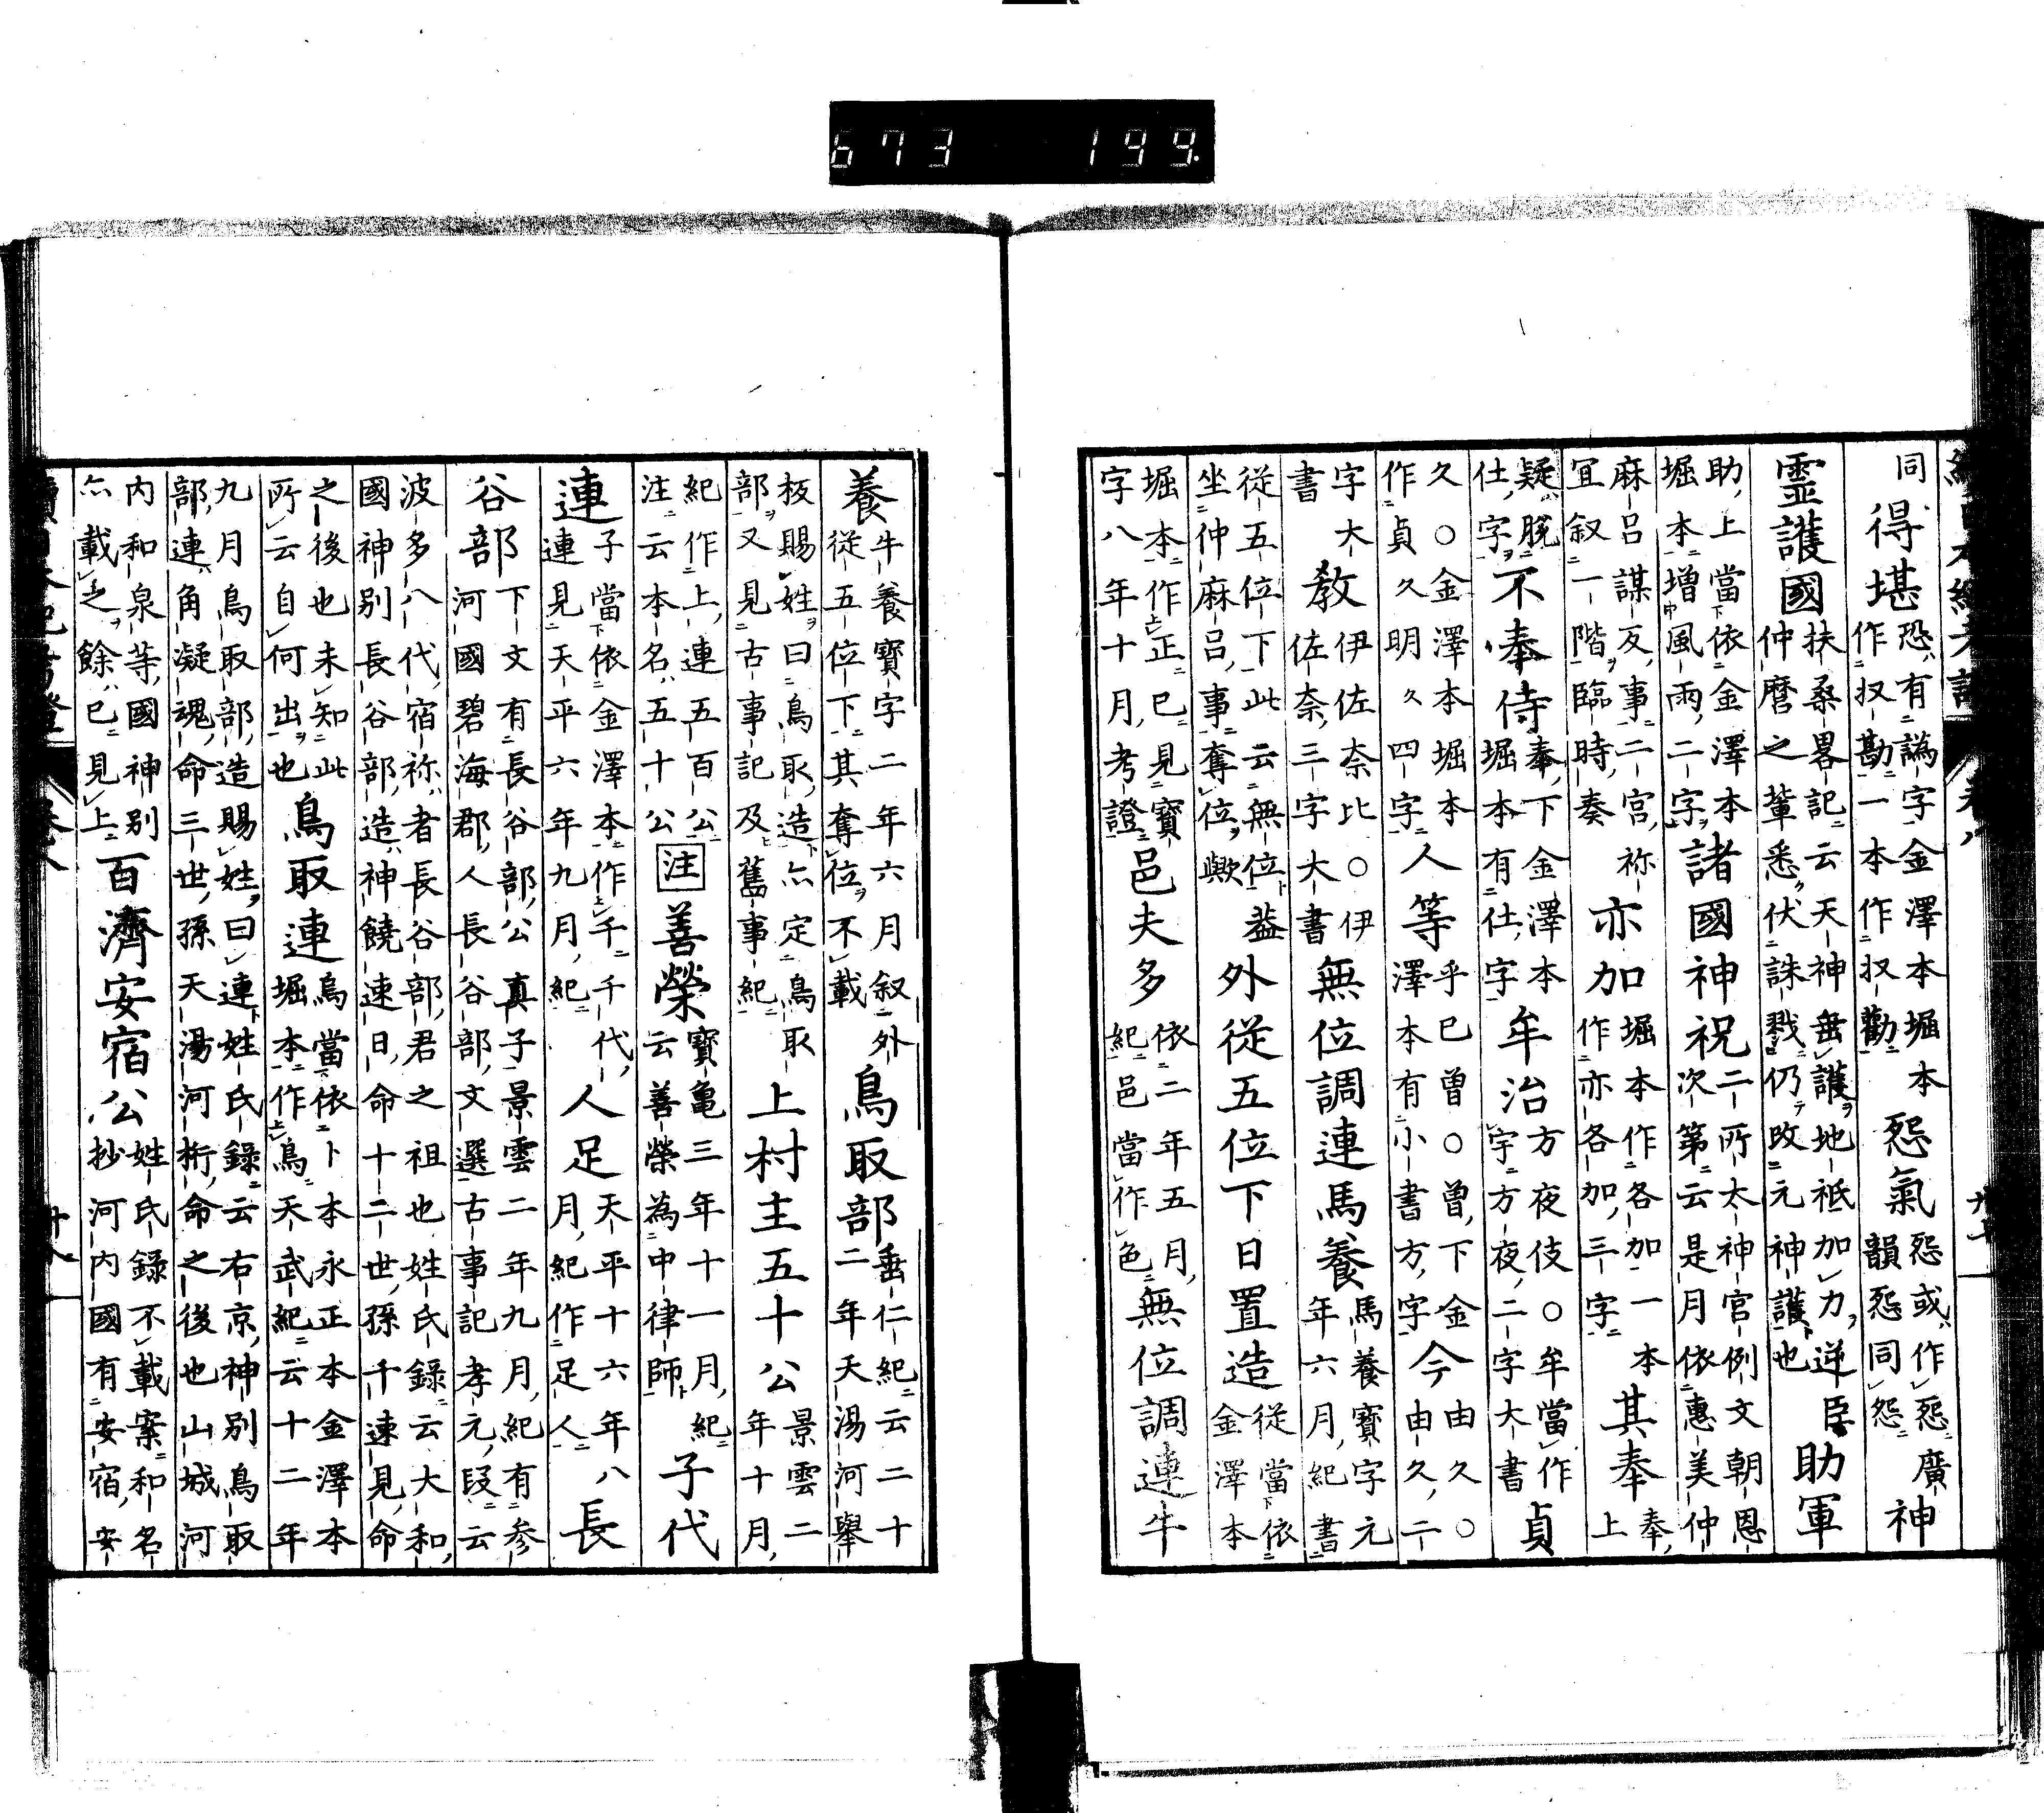 同得堪恐有譌字金澤本堀本作扠勘一本作扠勸怨氣怨或作㤪廣韻怨同㤪神
霊護國扶桑畧記云天神無護地祗加力逆臣仲麿之輩悉伏誅戮仍改元神護也助軍
助上當依金澤本堀本增風雨二字諸國神祝二所太神宮例文朝恩次第云是月依惠美仲
麻呂謀反事二宮祢宜叙一階臨時奏亦加堀本作各加一本作亦各加三字其奉奉上
疑脱仕字不奉侍奉下金澤本堀本有仕字牟治方夜伎○牟當作宇方夜二字大書貞
久○金澤本堀本作貞久明久四字人等乎已曾○曾下金澤本有小書方字今由久○由久二
字大書教伊佐奈比○伊佐奈三字大書無位調連馬養馬養寶字元年六月紀書
從五位下此云無位蓋坐仲麻呂事奪位歟外從五位下日置造從當依金澤本
堀本作正已見寶字八年十月考證邑夫多依二年五月紀邑當作色無位調連牛
養牛養寶字二年六月叙外從五位下其奪位不載鳥取部垂仁紀云二十二年天湯河擧
板賜姓曰鳥取造亦定鳥取部又見古事記及舊事紀上村主五十公景雲二年十月
紀作上連五百公注云本名五十公注善榮寶龜三年十一月紀云善榮為中律師子代
連子當依金澤本作千千代連見天平六年九月紀人足天平十六年八月紀作足人長
谷部下文有長谷部公真子景雲二年九月紀有参河國碧海郡人長谷部文選古事記孝元段云
波多八代宿祢者長谷部君之祖也姓氏錄云大和國神别長谷部造神饒速日命十二世孫千速見命
之後也未知此所云自何出也鳥取連鳥當依卜本永正本金澤本堀本作鳥天武紀云十二年
九月鳥取部造賜姓曰連姓氏錄云右京神别鳥取部連角凝魂命三世孫天湯河桁命之後也山城河
内和泉等國神别亦載之餘已見上百濟安宿公姓氏錄不載案和名抄河内國有安宿安
673 199.